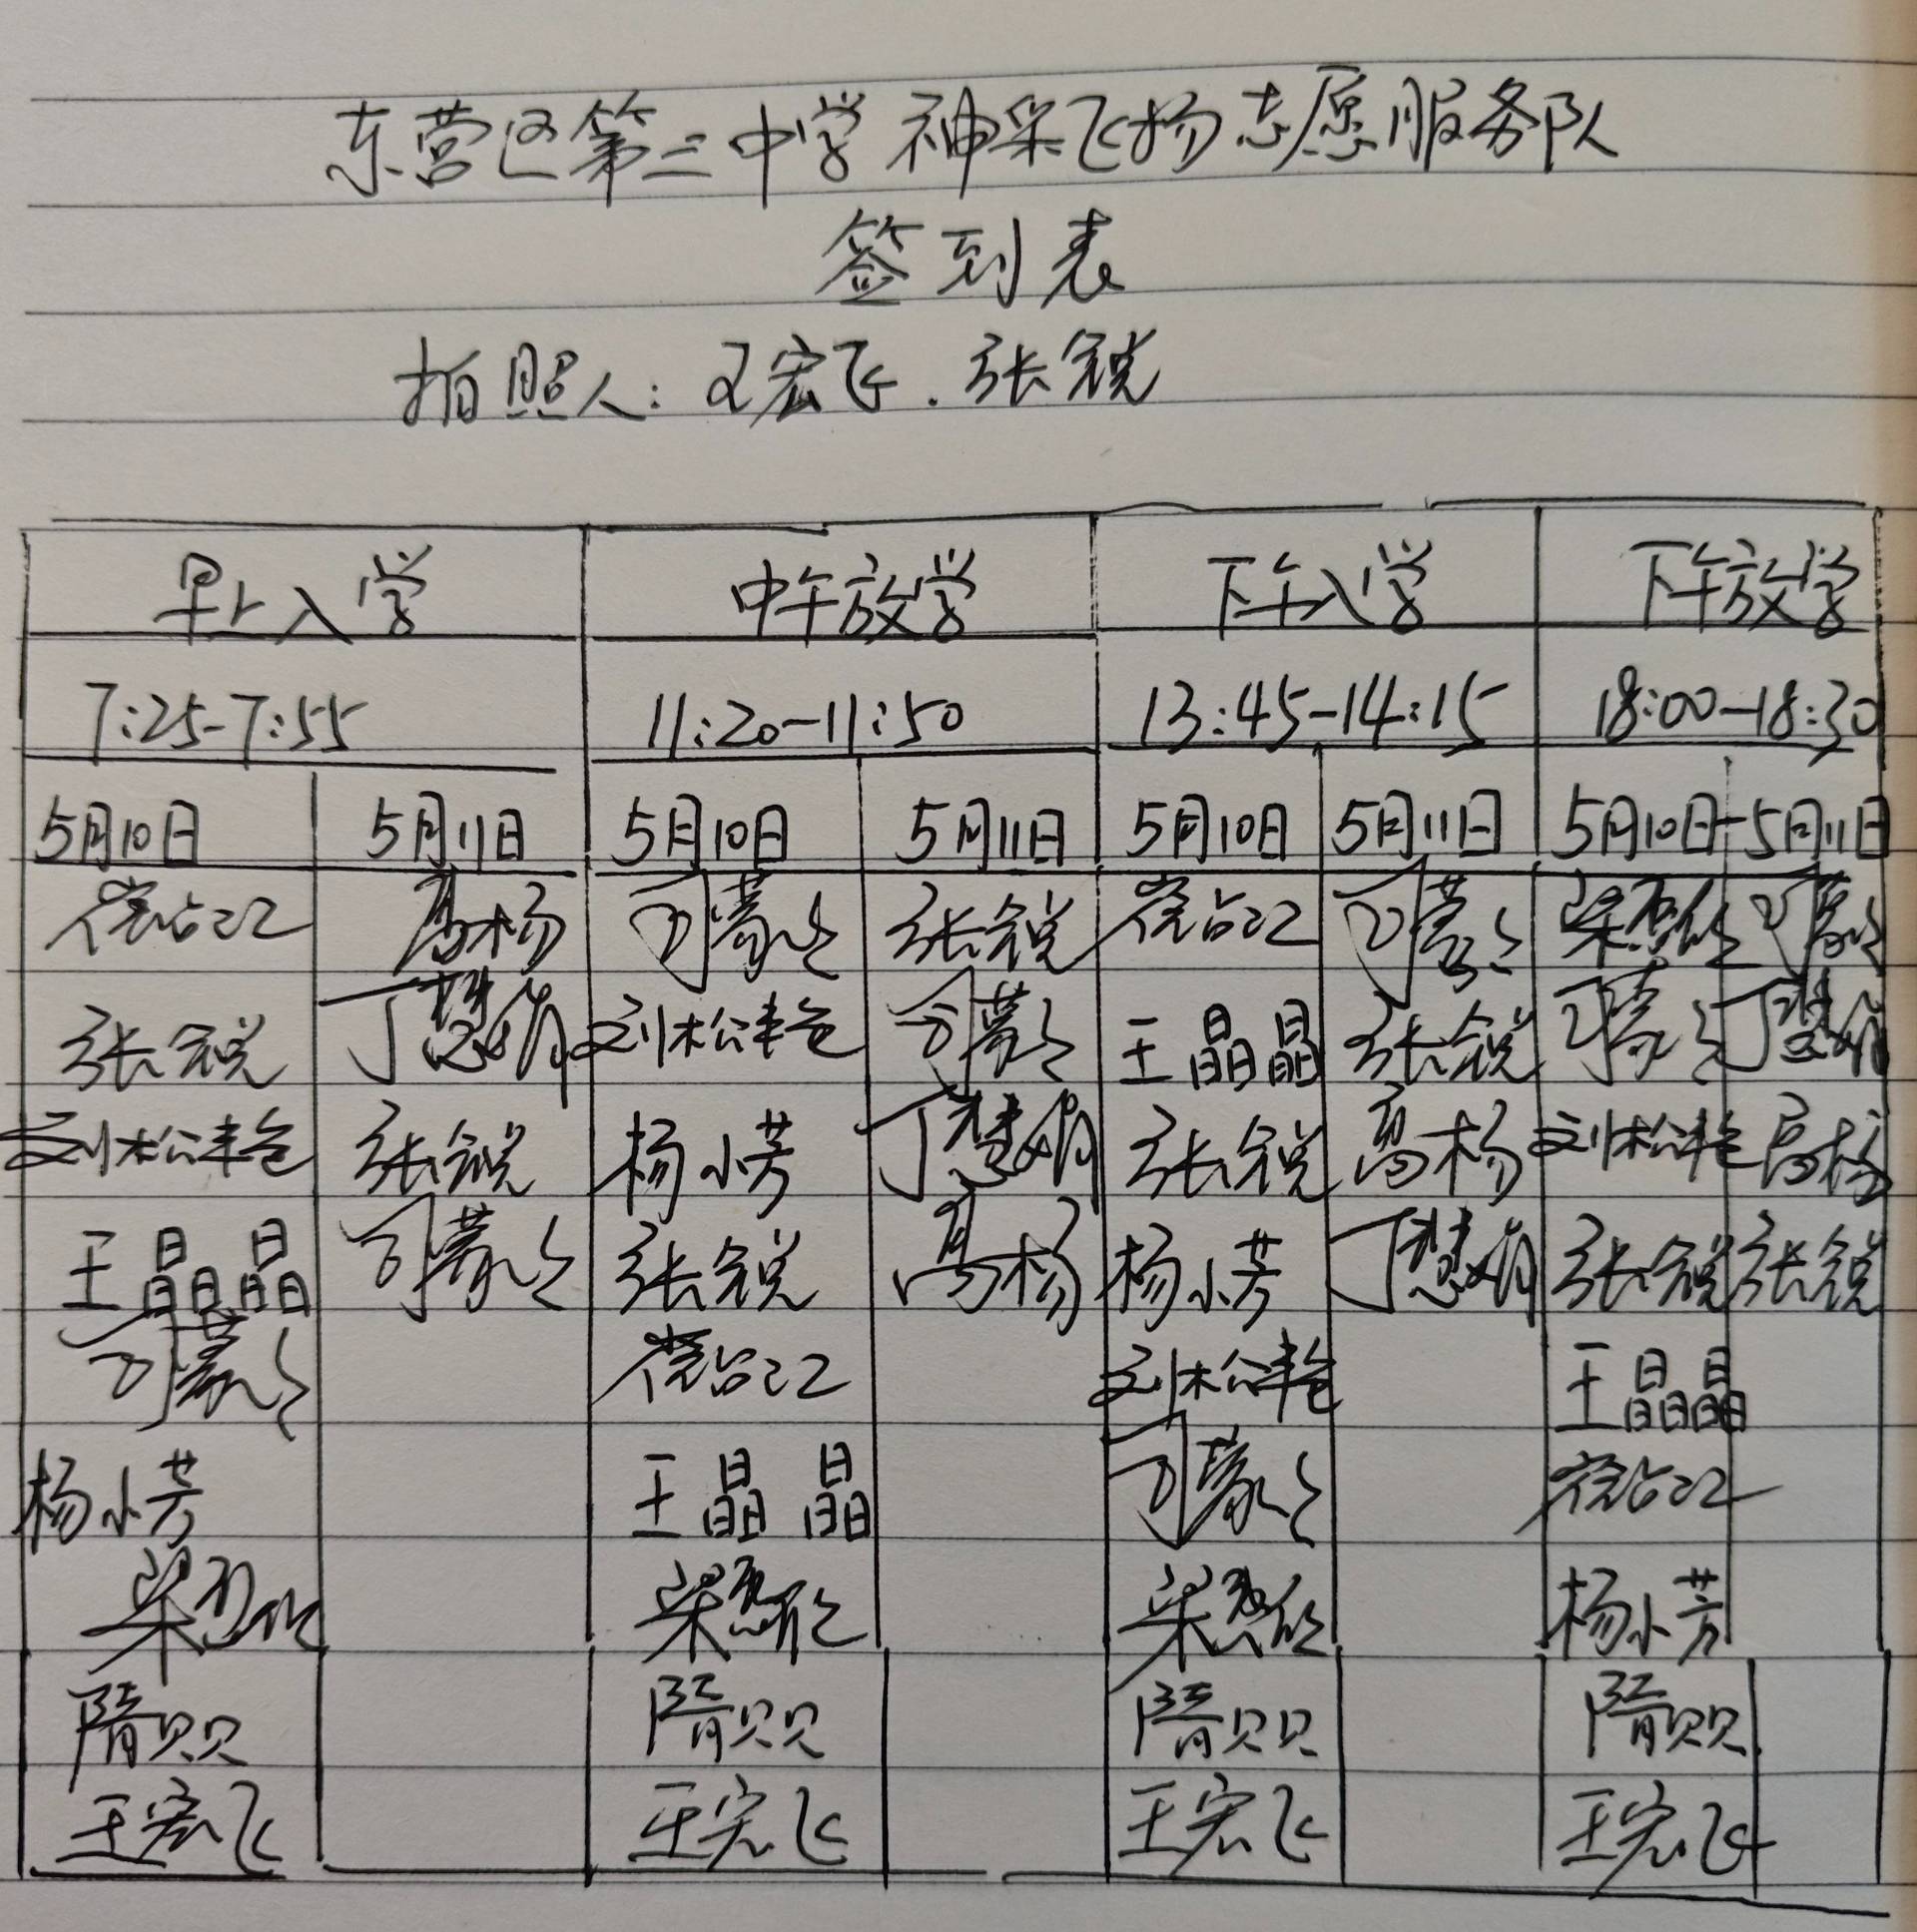 东营区第三中学神采飞扬志愿服务队
签到表
拍照人：王宏飞．张锐
早上入学 中午放学 下午入学 下午放学
7:25-7:55 11:20-11:50 13:45-14:15 18:00-18:30
5月10日 5月11日 5月10日 5月11日 5月10日 5月11日 5月10日 5月11日
高杨 张锐
张锐 丁慧娟 刘松艳 王晶晶 张锐 丁慧娟
刘松艳 张锐 杨小芳 丁慧娟 张锐 高杨 刘松艳 高杨
王晶晶 张锐 高杨 杨小芳 丁慧娟 张锐 张锐
刘松艳 王晶晶
杨小芳 王晶晶
杨小芳
隋贝贝 隋贝贝 隋贝贝 隋贝贝
王宏飞 王宏飞 王宏飞 王宏飞